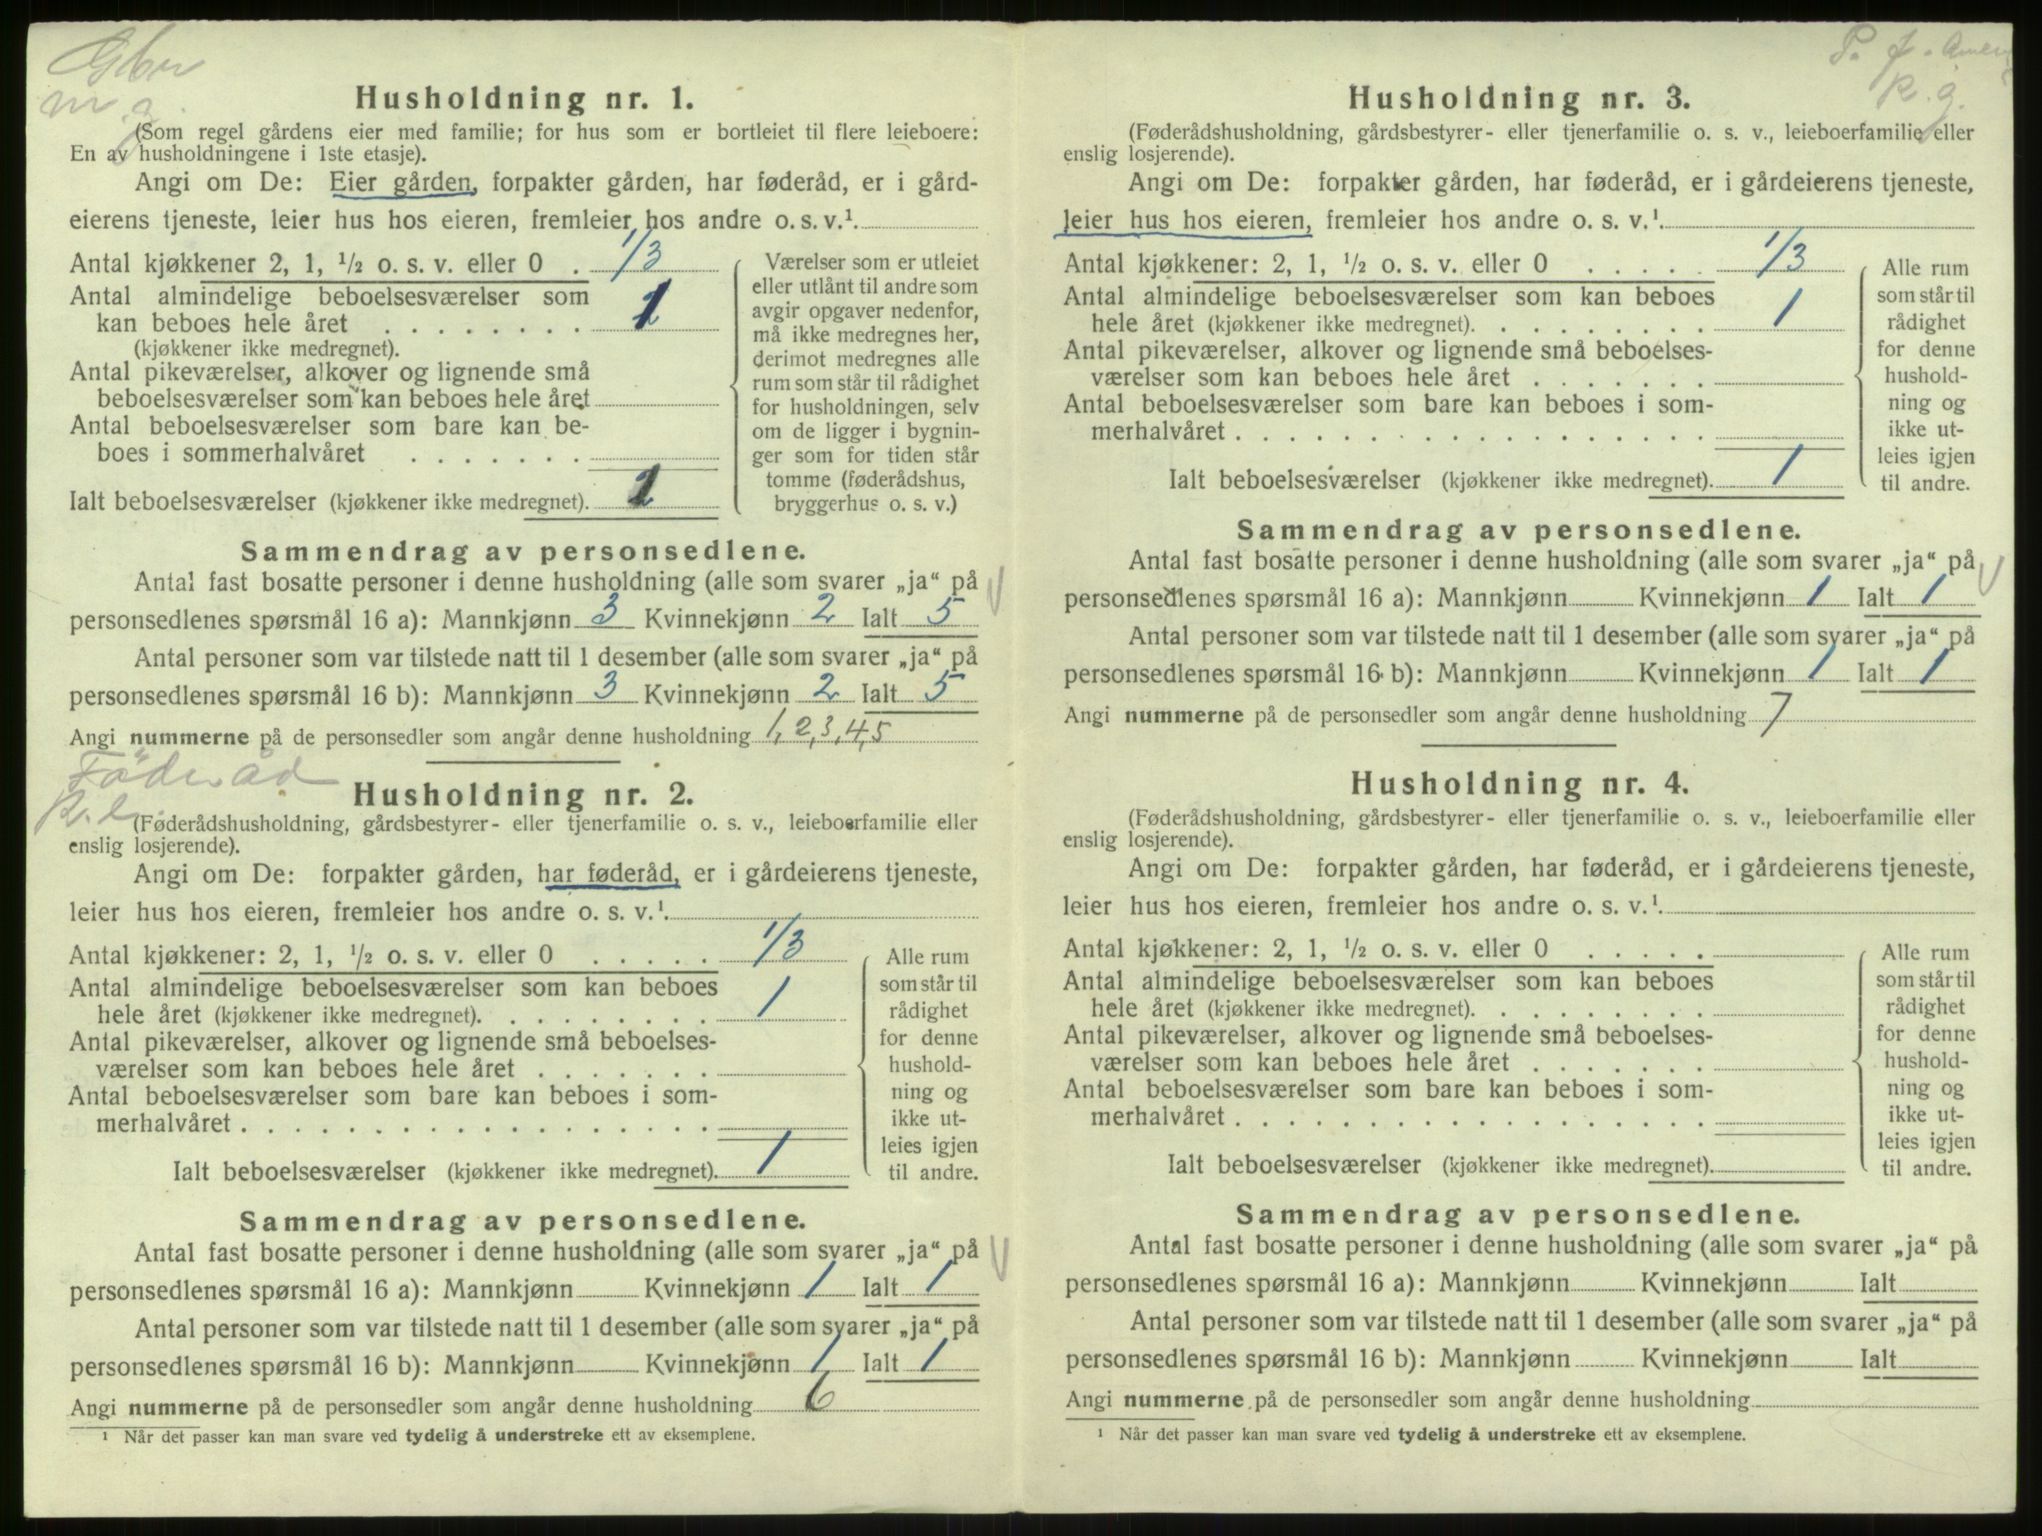 Gbr
m. g.
Husholdning nr. 1.
(Som regel gårdens eier med familie; for hus som er bortleiet til flere leieboere:
En av husholdningene i 1ste etasje).
Angi om De: Eier gården, forpakter gården, har føderåd, er i gård-
eierens tjeneste, leier hus hos eieren, fremleier hos andre o. s. v.¹
Antal kjøkkener 2, 1, ½ o. s. v. eller 0 . 1/3
Antal almindelige beboelsesværelser som
kan beboes hele året . . . . . . . . 2
(kjøkkener ikke medregnet).
Antal pikeværelser, alkover og lignende små
beboelsesværelser som kan beboes hele året
Antal beboelsesværelser som bare kan be-
boes i sommerhalvåret . . . . . . .
Ialt beboelsesværelser (kjøkkener ikke medregnet). 2
Værelser som er utleiet
eller utlånt til andre som
avgir opgaver nedenfor,
må ikke medregnes her,
derimot medregnes alle
rum som står til rådighet
for husholdningen, selv
om de ligger i bygnin-
ger som for tiden står
tomme (føderådshus,
bryggerhus o. s. v.)
Sammendrag av personsedlene.
Antal fast bosatte personer i denne husholdning (alle som svarer „ja“ på
personsedlenes spørsmål 16 a): Mannkjønn 3 Kvinnekjønn 2 Ialt 5
Antal personer som var tilstede natt til 1 desember (alle som svarer „ja“ på
personsedlenes spørsmål 16 b): Mannkjønn 3 Kvinnekjønn 2 Ialt 5
Angi nummerne på de personsedler som angår denne husholdning 1, 2, 3, 4, 5
Föderåd
Husholdning nr. 2.
(Føderådshusholdning, gårdsbestyrer- eller tjenerfamilie o. s. v., leieboerfamilie eller
enslig losjerende).
Angi om De: forpakter gården, har føderåd, er i gårdeierens tjeneste,
leier hus hos eieren, fremleier hos andre o. s. v.¹
Antal kjøkkener: 2, 1, ½ o. s. v. eller 0 . . . . . 1/3
Antal almindelige beboelsesværelser som kan beboes
hele året (kjøkkener ikke medregnet). . . . . . . . . 1
Antal pikeværelser, alkover og lignende små beboelses-
værelser som kan beboes hele året . . . . . . .
Antal beboelsesværelser som bare kan beboes i som-
merhalvåret . . . . . . . . . . . . . . . . . .
Ialt beboelsesværelser (kjøkkener ikke medregnet). 1
Alle rum
som står til
rådighet
for denne
hushold-
ning og
ikke ut-
leies igjen
til andre.
Sammendrag av personsedlene.
Antal fast bosatte personer i denne husholdning (alle som svarer „ja“ på
personsedlenes spørsmål 16 a): Mannkjønn Kvinnekjønn 1 Ialt 1
Antal personer som var tilstede natt til 1 desember (alle som svarer „ja“ på
personsedlenes spørsmål 16 b): Mannkjønn Kvinnekjønn 1 Ialt 1
Angi nummerne på de personsedler som angår denne husholdning 6
¹ Når det passer kan man svare ved tydelig å understreke ett av eksemplene.
P. f.
R. g.
Husholdning nr. 3.
(Føderådshusholdning, gårdsbestyrer- eller tjenerfamilie o. s. v., leieboerfamilie eller
enslig losjerende).
Angi om De: forpakter gården, har føderåd, er i gårdeierens tjeneste,
leier hus hos eieren, fremleier hos andre o. s. v.¹
Antal kjøkkener: 2, 1, ½ o. s. v. eller 0 . . . . . 1/3
Antal almindelige beboelsesværelser som kan beboes
hele året (kjøkkener ikke medregnet). . . . . . . . . 1
Antal pikeværelser, alkover og lignende små beboelses-
værelser som kan beboes hele året . . . . . . .
Antal beboelsesværelser som bare kan beboes i som-
merhalvåret . . . . . . . . . . . . . . . . . .
Ialt beboelsesværelser (kjøkkener ikke medregnet). 1
Alle rum
som står til
rådighet
for denne
hushold-
ning og
ikke ut-
leies igjen
til andre.
Sammendrag av personsedlene.
Antal fast bosatte personer i denne husholdning (alle som svarer „ja“ på
personsedlenes spørsmål 16 a): Mannkjønn Kvinnekjønn 1 Ialt 1
Antal personer som var tilstede natt til 1 desember (alle som svarer „ja“ på
personsedlenes spørsmål 16 b): Mannkjønn Kvinnekjønn 1 Ialt 1
Angi nummerne på de personsedler som angår denne husholdning 7
Husholdning nr. 4.
(Føderådshusholdning, gårdsbestyrer- eller tjenerfamilie o. s. v., leieboerfamilie eller
enslig losjerende).
Angi om De: forpakter gården, har føderåd, er i gårdeierens tjeneste,
leier hus hos eieren, fremleier hos andre o. s. v.¹
Antal kjøkkener: 2, 1, ½ o. s. v. eller 0 . . . . .
Antal almindelige beboelsesværelser som kan beboes
hele året (kjøkkener ikke medregnet). . . . . . . . .
Antal pikeværelser, alkover og lignende små beboelses-
værelser som kan beboes hele året . . . . . . .
Antal beboelsesværelser som bare kan beboes i som-
merhalvåret . . . . . . . . . . . . . . . . . .
Ialt beboelsesværelser (kjøkkener ikke medregnet).
Alle rum
som står til
rådighet
for denne
hushold-
ning og
ikke ut-
leies igjen
til andre.
Sammendrag av personsedlene.
Antal fast bosatte personer i denne husholdning (alle som svarer „ja“ på
personsedlenes spørsmål 16 a): Mannkjønn Kvinnekjønn Ialt
Antal personer som var tilstede natt til 1 desember (alle som svarer „ja“ på
personsedlenes spørsmål 16 b): Mannkjønn Kvinnekjønn Ialt
Angi nummerne på de personsedler som angår denne husholdning
¹ Når det passer kan man svare ved tydelig å understreke ett av eksemplene.